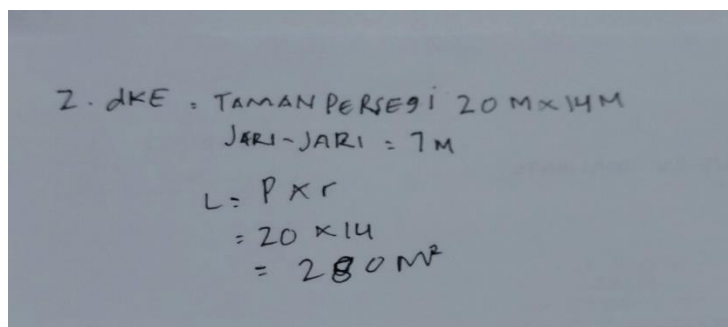 2. dKE : TAMAN PERSEGI 20 M x 14 M
JARI-JARI = 7 M
L = P x r
= 20 x 14
= 280 M²